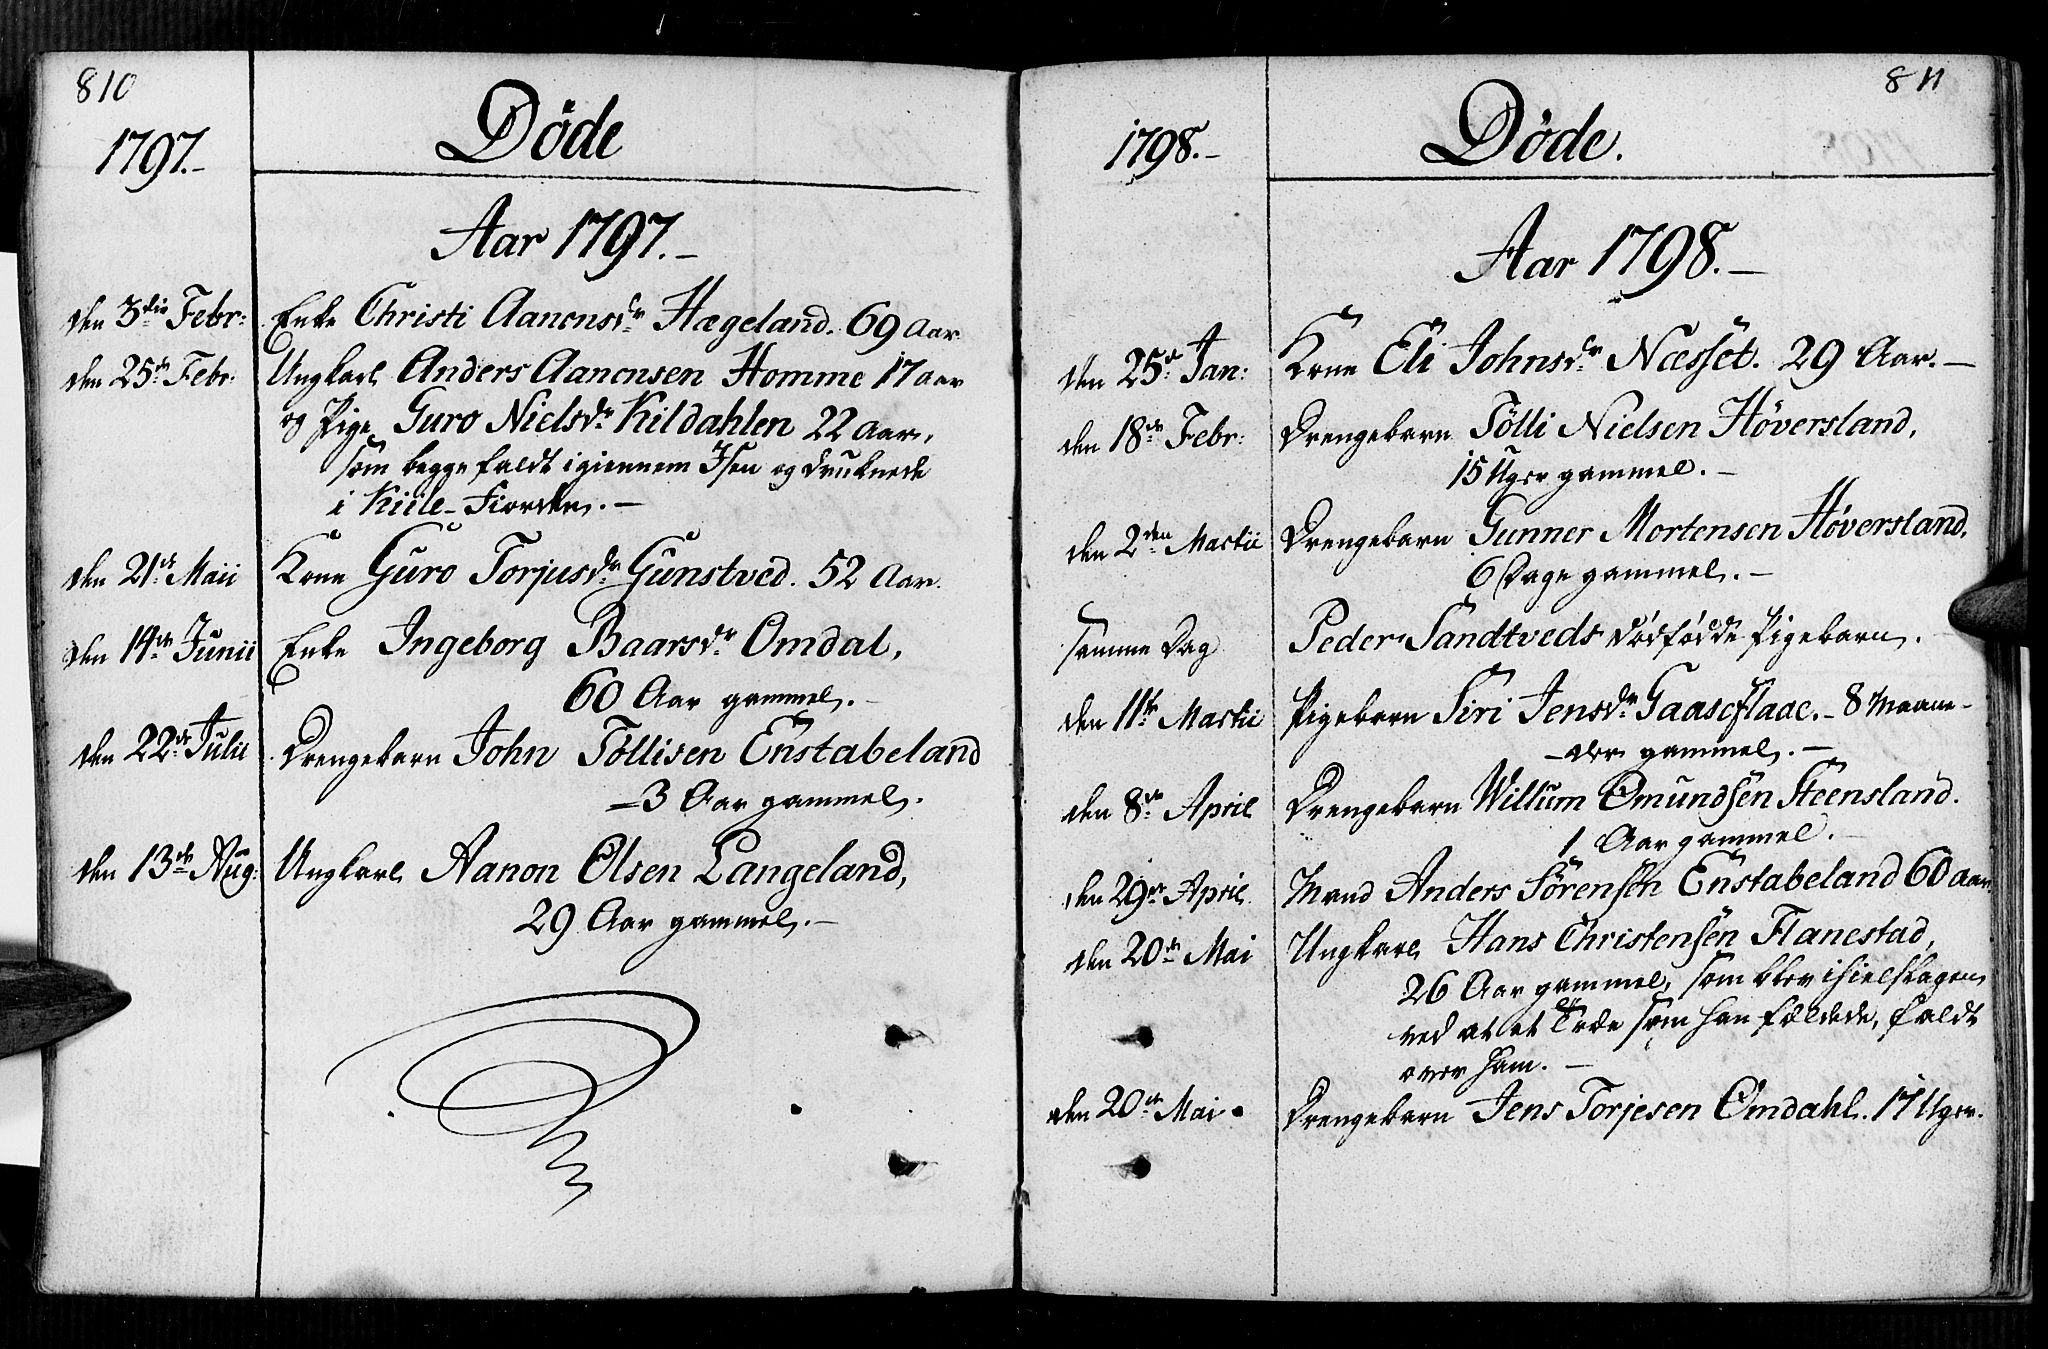 810
1797.-
Döde
Aar 1797.-
den 3die Febr: Enke Christi Aanonsdr Hægeland. 69 Aar
den 25de Febr: Ungkarl Anders Aanonsen Homme 17 aar
og Pige Guro Nielsdr Kildahlen 22 Aar,
som begge faldt igiennem Isen og druknede
i Kiile-Fiorden.-
den 21de Maii Kone Guro Torjusdr Gunstved. 52 Aar.
den 14de Junii Enke Ingeborg Baarsdr Omdal,
60 Aar gammel.-
den 22de Julii Drengebarn John Töllisen Enstabeland
-3 Aar gammel.
den 13de Aug: Ungkarl Aanon Olsen Langeland,
29 Aar gammel.-
811
1798.-
Döde.
Aar 1798.-
den 25de Jan: Kone Eli Johnsdr Næsset. 29 Aar.-
den 18de Febr: Drengebarn Tölli Nielsen Höversland,
15 Uger gammel.-
den 2den Martii Drengebarn Gunner Mortensen Höversland.
6 Dage gammel.-
samme Dag Peder Sandtveds dødfødde Pigebarn.
den 11te Martii Pigebarn Siri Jensdr Gaaseflaae.- 8 Maane-
-der gammel.-
den 8de April Drengebarn Willum Omundsen Steensland.
1 Aar gammel.-
den 29de April Mand Anders Sörensen Enstabeland 60 aar.
den 20de Mai Ungkarl Hans Christensen Flanestad,
26 Aar gammel, som blev ihielslagen
ved at et Træe som han fældede, faldt
over ham.-
den 20de Mai. Drengebarn Jens Torjesen Omdahl. 17 Uger.